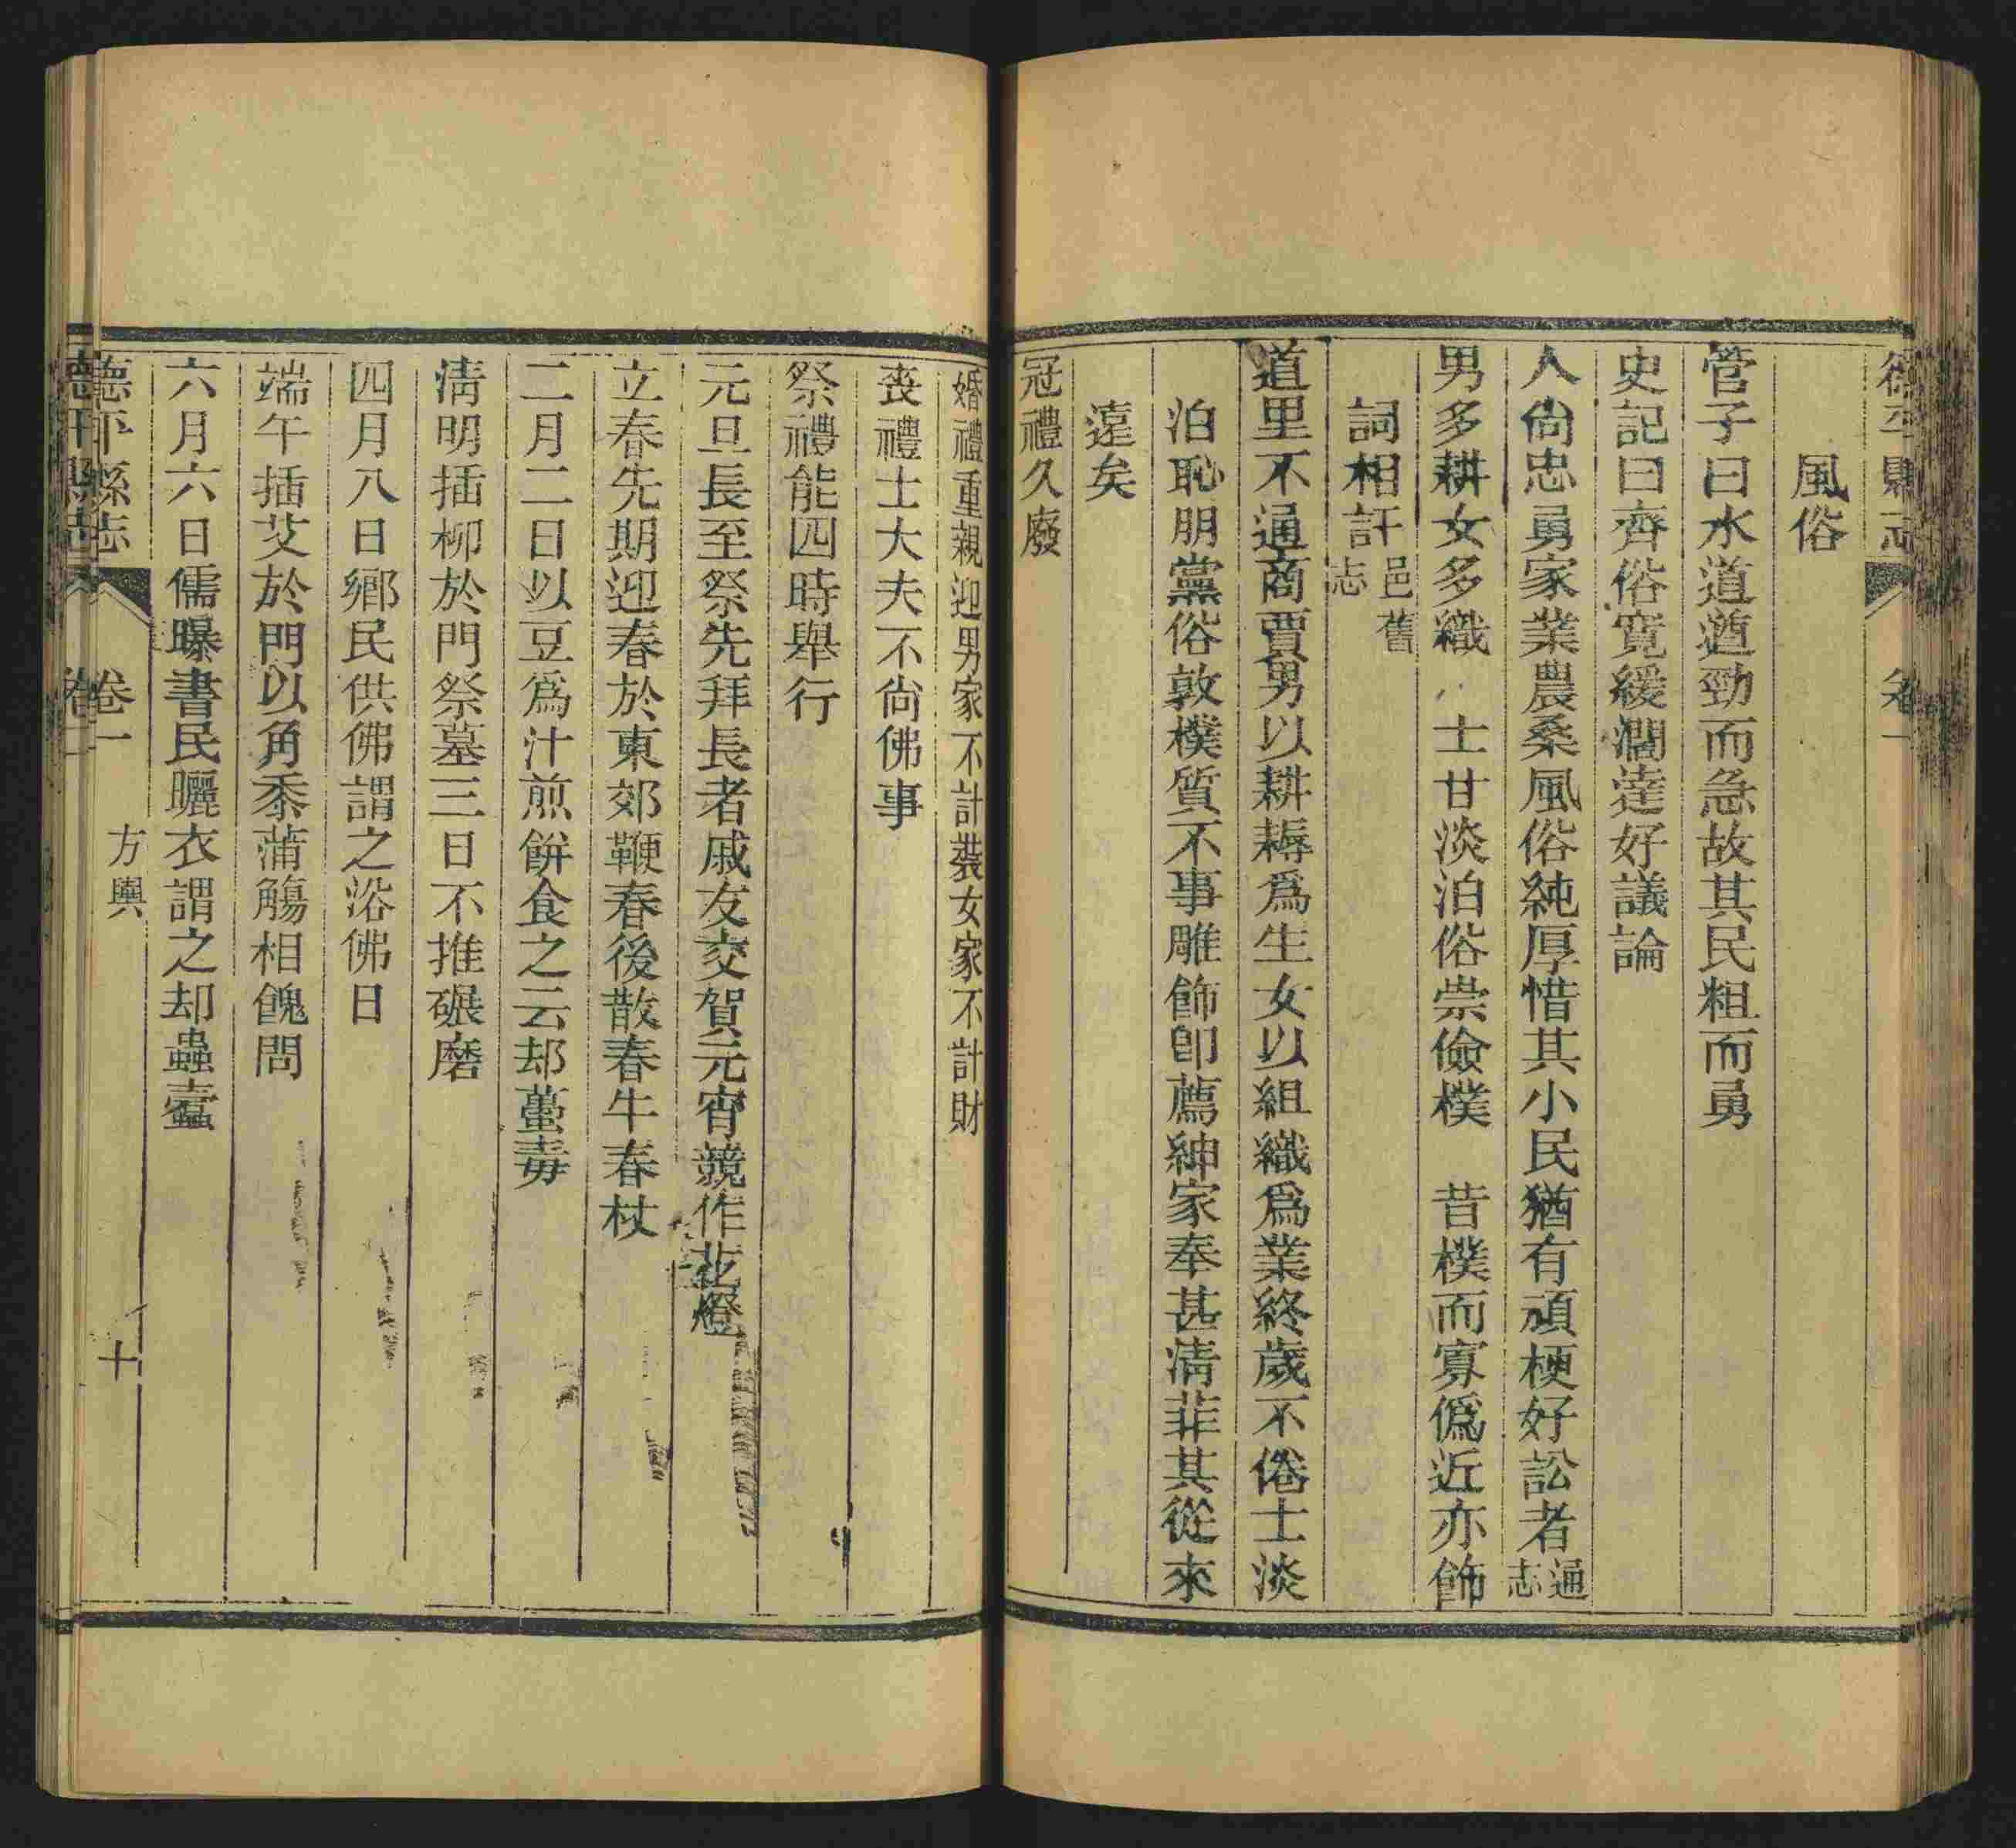 風俗
管子曰水道遒勁而急故其民粗而勇
史記曰齊俗寬緩濶達好議論
人尙忠勇家業農桑風俗純厚惜其小民猶有頑梗好訟者通志
男多耕女多織 士甘淡泊俗崇儉樸 昔樸而寡僞近亦飾
詞相訐邑舊志
道里不通商賈男以耕耨爲生女以組織爲業終歲不倦士淡
泊恥朋黨俗敦樸質不事雕飾卽薦紳家奉甚淸菲其從來
遠矣
冠禮久廢
婚禮重親迎男家不計裝女家不計財
喪禮士大夫不尙佛事
祭禮能四時舉行
元旦長至祭先拜長者戚友交賀元宵競作花燈
立春先期迎春於東郊鞭春後散春牛春杖
二月二日以豆爲汁煎餅食之云却蠆毒
淸明插柳於門祭墓三日不推碾磨
四月八日鄕民供佛謂之浴佛日
端午插艾於門以角黍蒲觴相餽問
六月六日儒曝書民曬衣謂之却蟲蠹
德平縣志 卷一 方輿 十